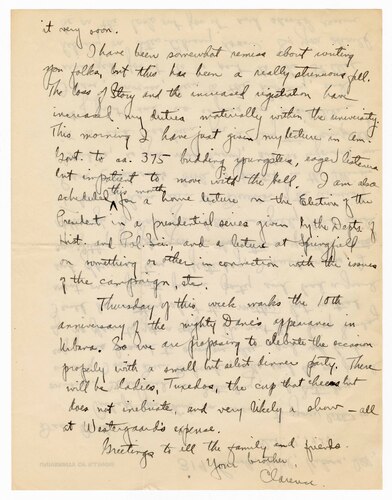 it very soon.
I have been somewhat remiss about writing
you folks, but this has been a really strenuous fall.
The loss of Story and the increased registration have
increased my duties materially within the university.
This morning I have just given my lecture in Am.
Govt. to ca. 375 budding youngsters, eager listeners
but impatient to move with the bell. I am also
this month
scheduled ^ for a home lecture on the Election of the
President in a presidential series given by the Depts of
Hist. and Pol. Sci., and a lecture at Springfield
on something or other in connection with the issues
of the campaign, etc.
Thursday of this week marks the 10th
anniversary of the mighty Dane's appearance in
Urbana. So we are proposing to celebrate the occasion
properly with a small but select dinner party. There
will be ladies, Tuxedos, the cup that cheers but
does not inebriate, and very likely a show – all
at Westergaard's expense.
Greetings to all the family and friends.
Your brother,
Clarence.